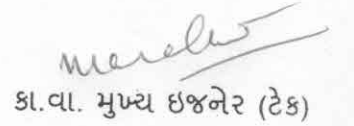 કા.વા. મુખ્ય ઇજનેર (ટેક)